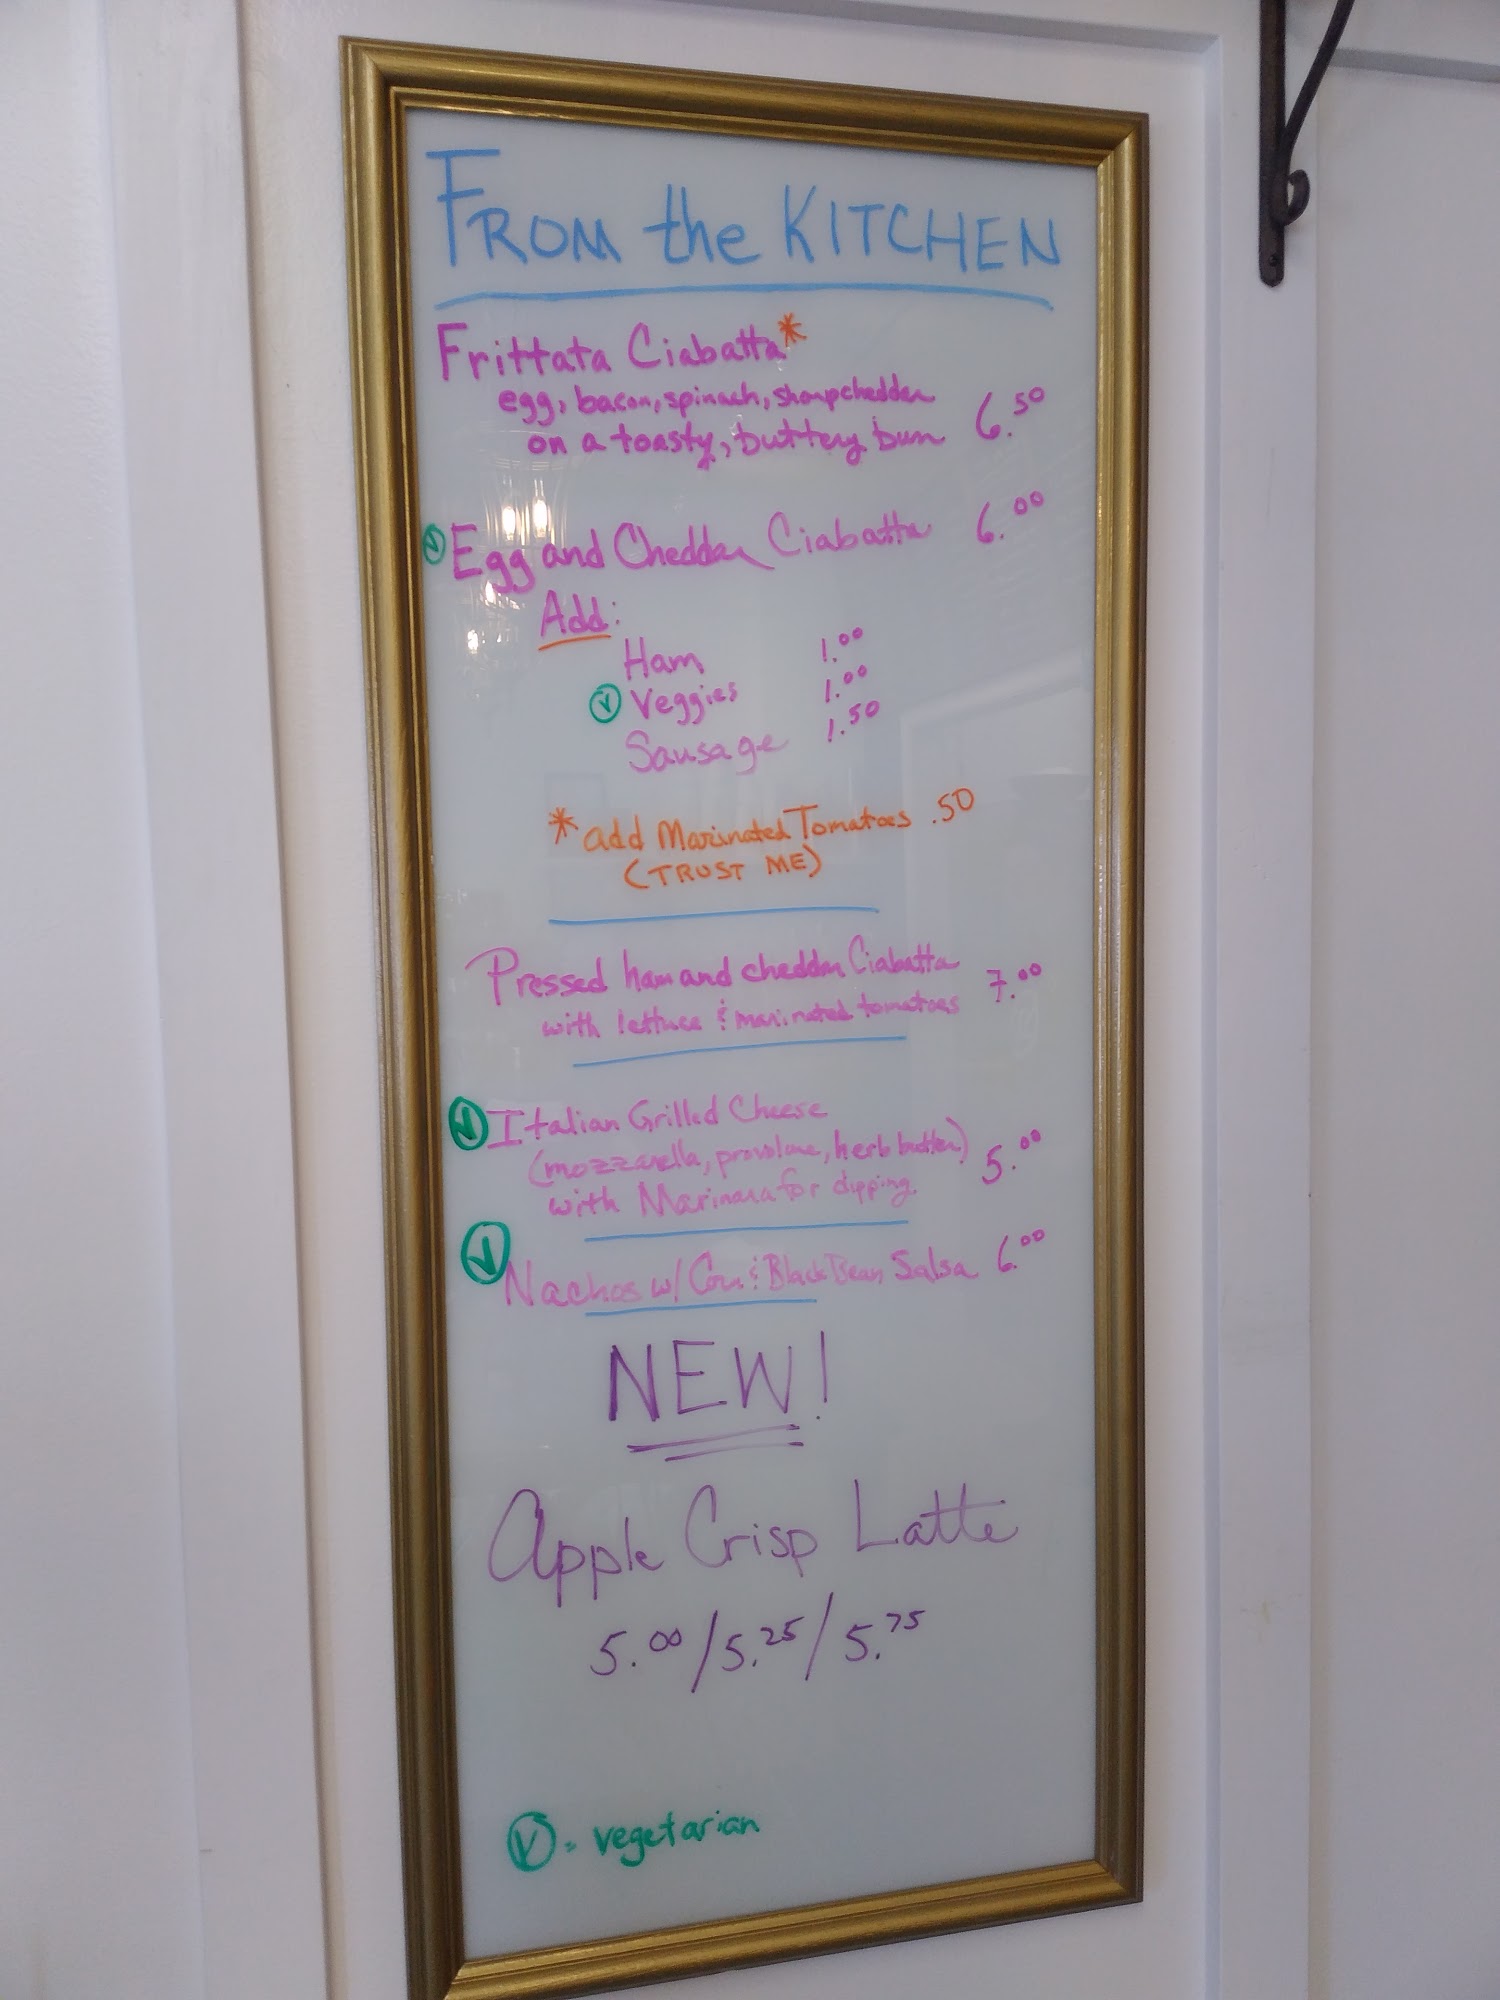 FROM the KITCHEN
Frittata Ciabatta*
egg, bacon, spinach, sharp cheddar
on a toasty, buttery bun 6.50
V Egg and Cheddar Ciabatta 6.00
Add:
Ham 1.00
V Veggies 1.00
Sausage 1.50
* add Marinated Tomatoes .50
(TRUST ME)
Pressed ham and cheddar Ciabatta
with lettuce & marinated tomatoes 7.00
V Italian Grilled Cheese
(mozzarella, provolone, herb butter) 5.00
with Marinara for dipping.
V Nachos w/ Corn & Black Bean Salsa 6.00
NEW!
Apple Crisp Latte
5.00/5.25/5.75
V = vegetarian